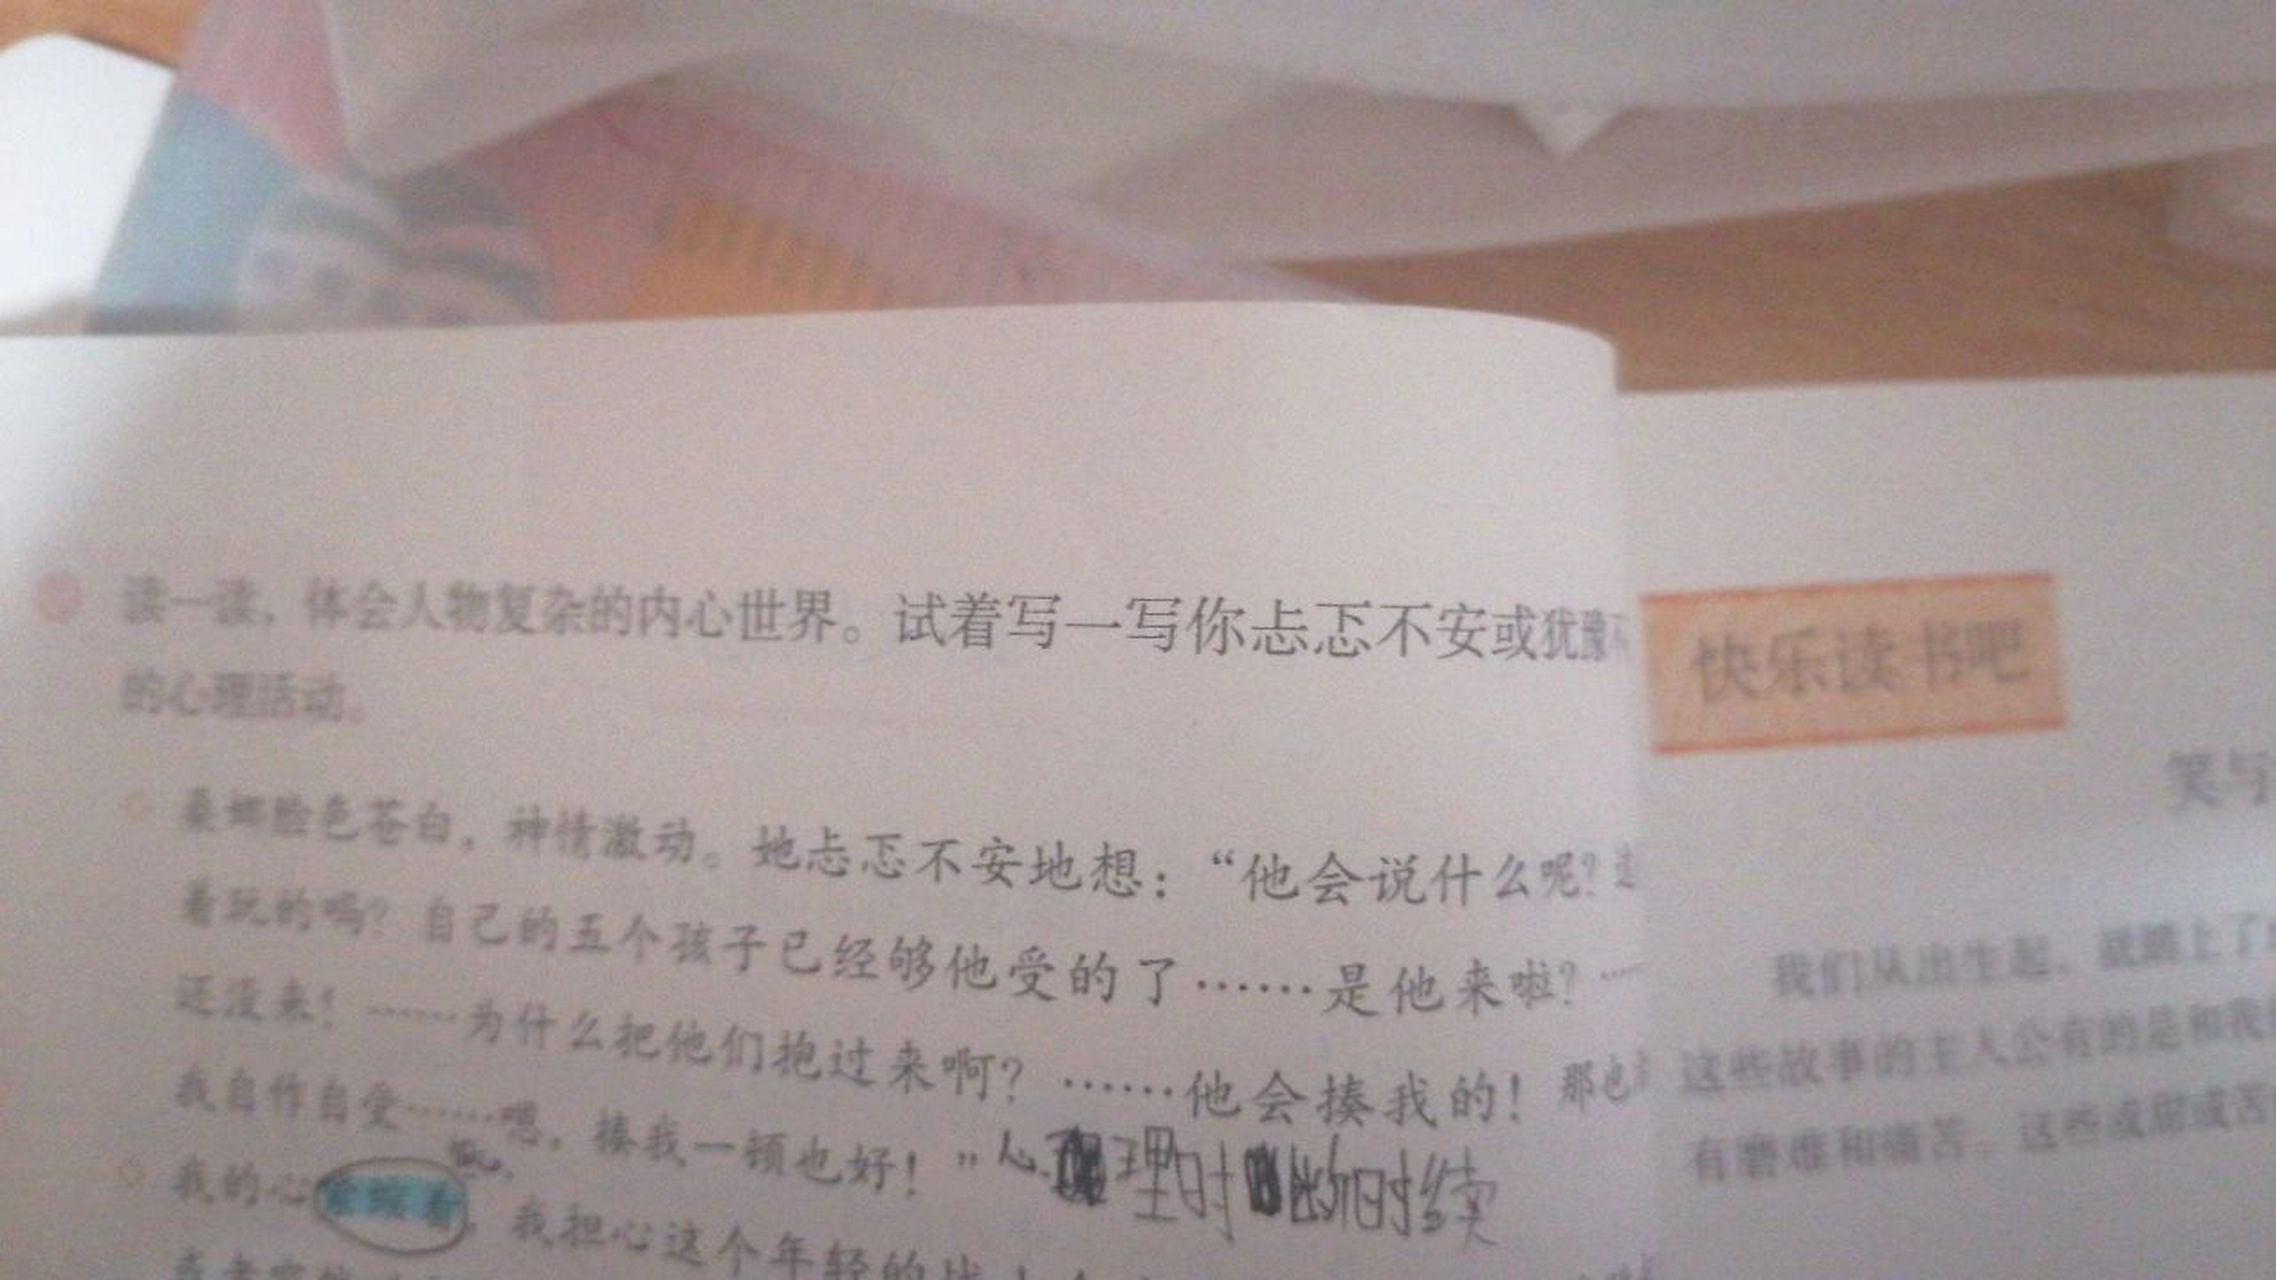 读一读，体会人物复杂的内心世界。试着写一写你忐忑不安或犹豫不
的心理活动。
桑娜脸色苍白，神情激动。她忐忑不安地想：“他会说什么呢？这
着玩的吗？自己的五个孩子已经够他受的了……是他来啦？……
还没来！……为什么把他们抱过来啊？……他会揍我的！那也
我自作自受……嗯，揍我一顿也好！”
心理时断时续
我的心
，我担心这个年轻的战士会
快乐读书吧
笑与
我们从出生起，就踏上了
这些故事的主人公有的是和我
有磨难和痛苦。这些或甜或苦